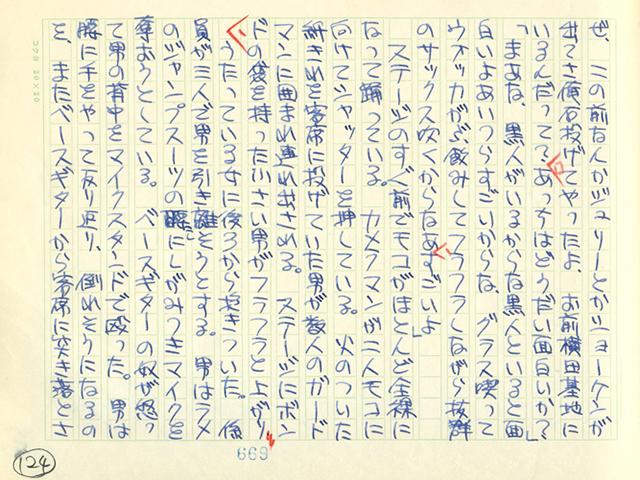 ぜ、この前なんかジュリーとかショーケンが
出てさ俺石投げてやったよ。お前横田基地に
いるんだって?あっちはどうだい面白いか?」
「まあな、黒人がいるからな黒人といると面
白いよあいつらすごいからな、グラス喫って
ウオッカがぶ飲みしてフラフラしながら抜群
のサックス吹くからなあすごいよ」
ステージのすぐ前でモコがほとんど全裸に
なって踊っている。カメラマンが二人モコに
向けてシャッターを押している。火のついた
紙きれを客席に投げていた男が数人のガード
マンに囲まれ連れ出される。ステージにボン
ドの袋を持った小さい男がフラフラと上がり
うたっている女に後ろから抱きついた。係
員が三人で男を引き離そうとする。男はラメ
のジャンプスーツの腰にしがみつきマイクを
奪おうとしている。ベースギターの奴が怒っ
て男の背中をマイクスタンドで殴った。男は
腰に手をやって反り返り、倒れそうになるの
を、またベースギターから客席に突き落とさ
669
124
コクヨ 20×20